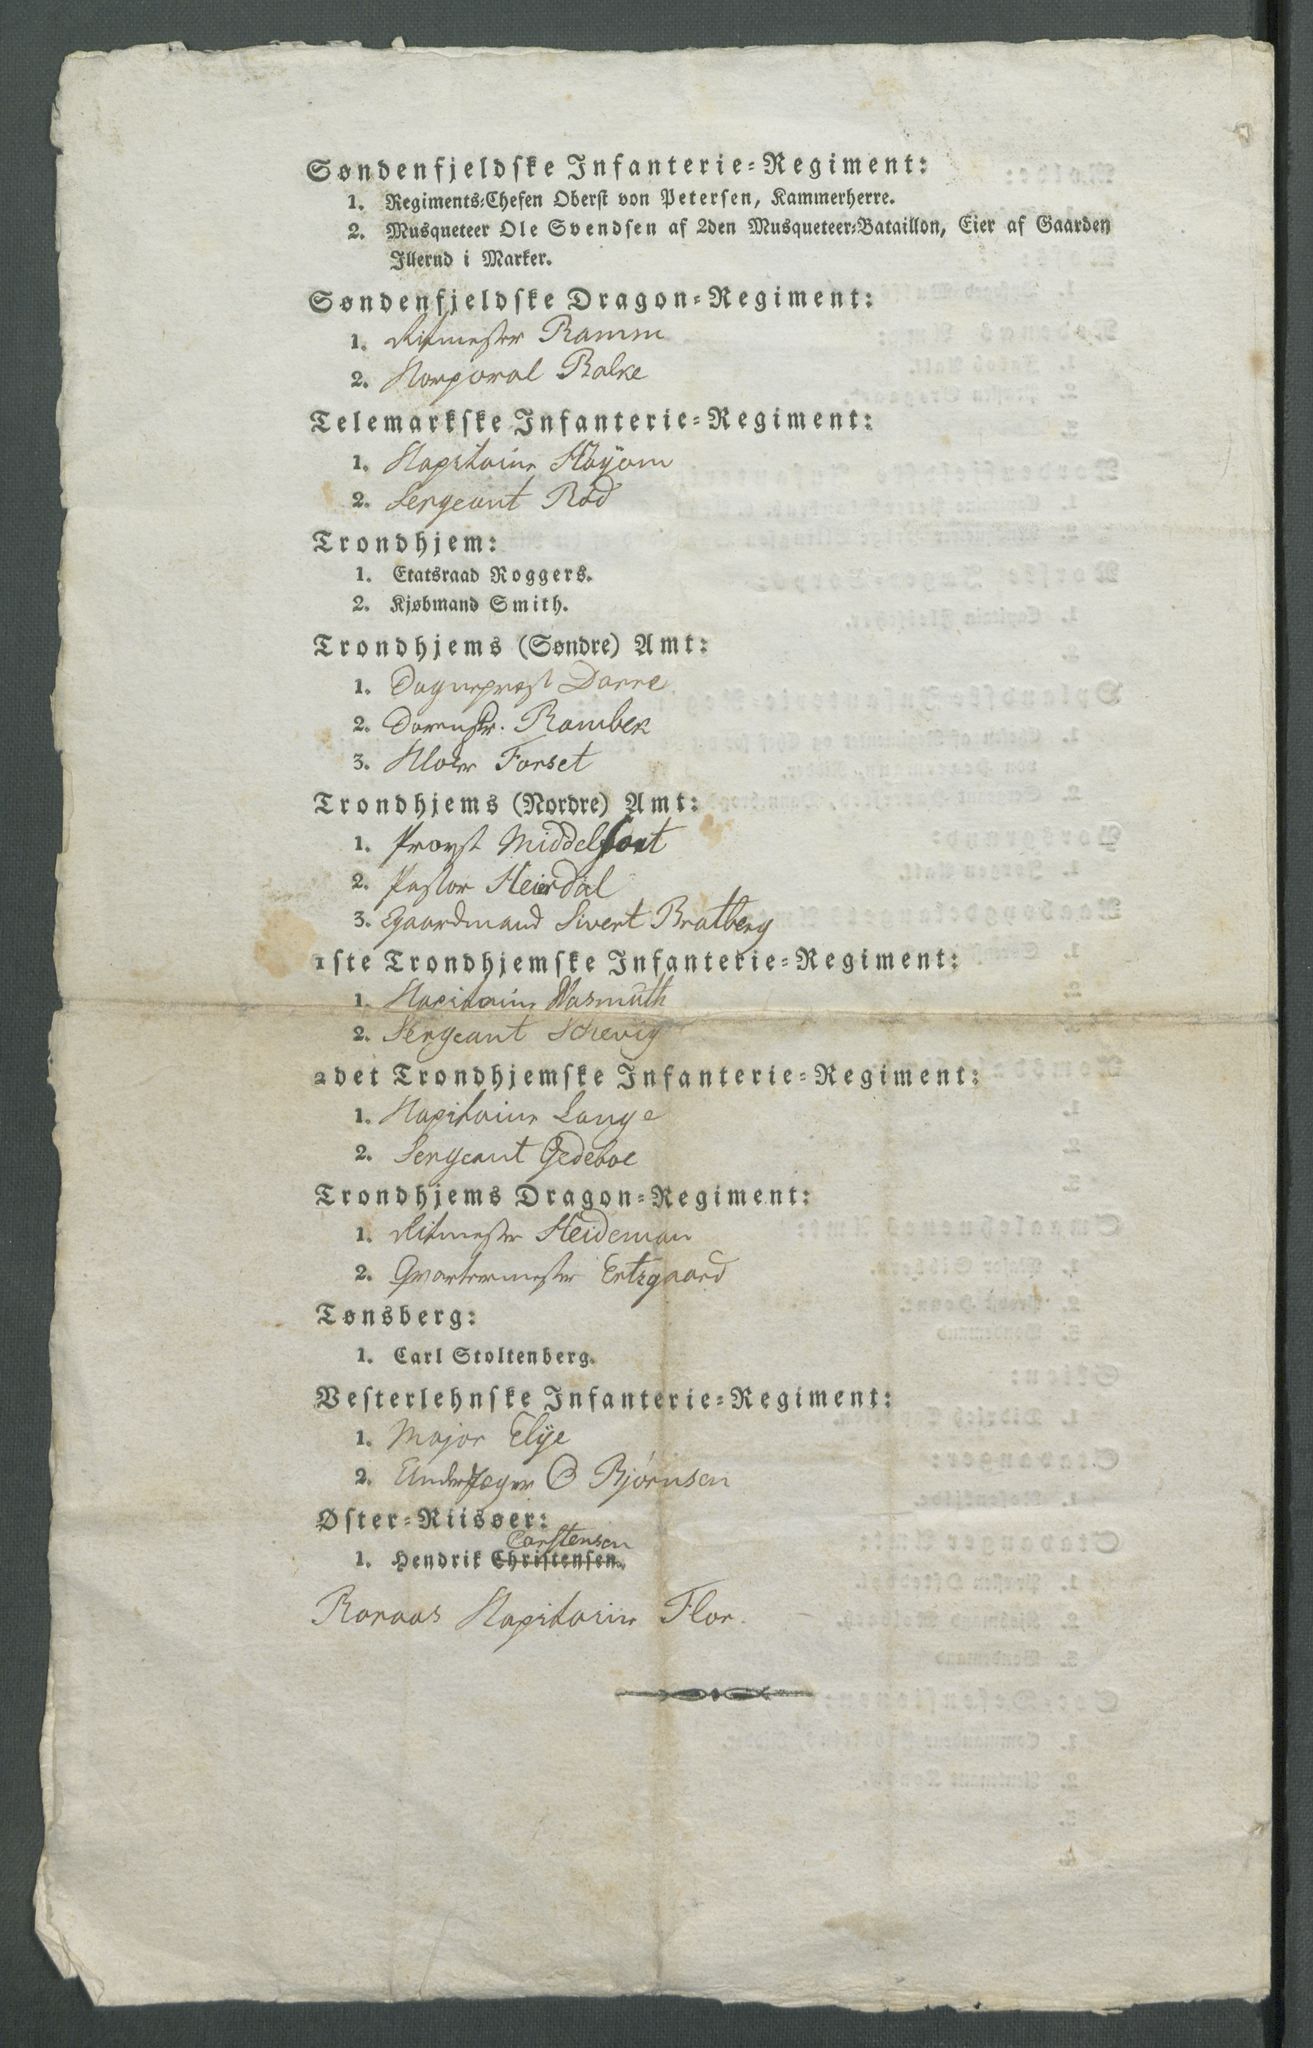 Søndenfjeldske Infanterie-Regiment:
1. Regiments-Chefen Oberst von Petersen, Kammerherre.
2. Musqueteer Ole Svendsen af 2den Musqueteer-Bataillon, Eier af Gaarden
Illerud i Marker.
Søndenfjeldske Dragon-Regiment:
1. Ritmester Ramm
2. Korporal Balke
Telemarkske Infanterie-Regiment:
1. Kapitaine Høyom
2. Sergeant Rød
Trondhjem:
1. Etatsraad Roggers.
2. Kjøbmand Smith.
Trondhjems (Søndre) Amt:
1. Sognepræst Darre
2. Sorenskr. Rambek
3. Forset
Trondhjems (Nordre) Amt:
1. Provst Middelfart
2. Pastor Heierdal
3. Gaardmand Sivert Bratberg
1ste Trondhjemske Infanterie-Regiment:
1. Kapitaine Wasmuth
2. Sergeant Schevig
2det Trondhjemske Infanterie-Regiment:
1. Kapitaine Lange
2. Sergeant Gedeboe
Trondhjems Dragon-Regiment:
1. Ritmester Heideman
2. Qvartermester Ertzgaard
Tønsberg:
1. Carl Stoltenberg.
Vesterlehnske Infanterie-Regiment:
1. Major Ely
2. Underjæger O Bjørnsen
Øster-Riisøer:
Carstensen
1. Hendrik Christensen.
Roraas Kapitaine Flor.